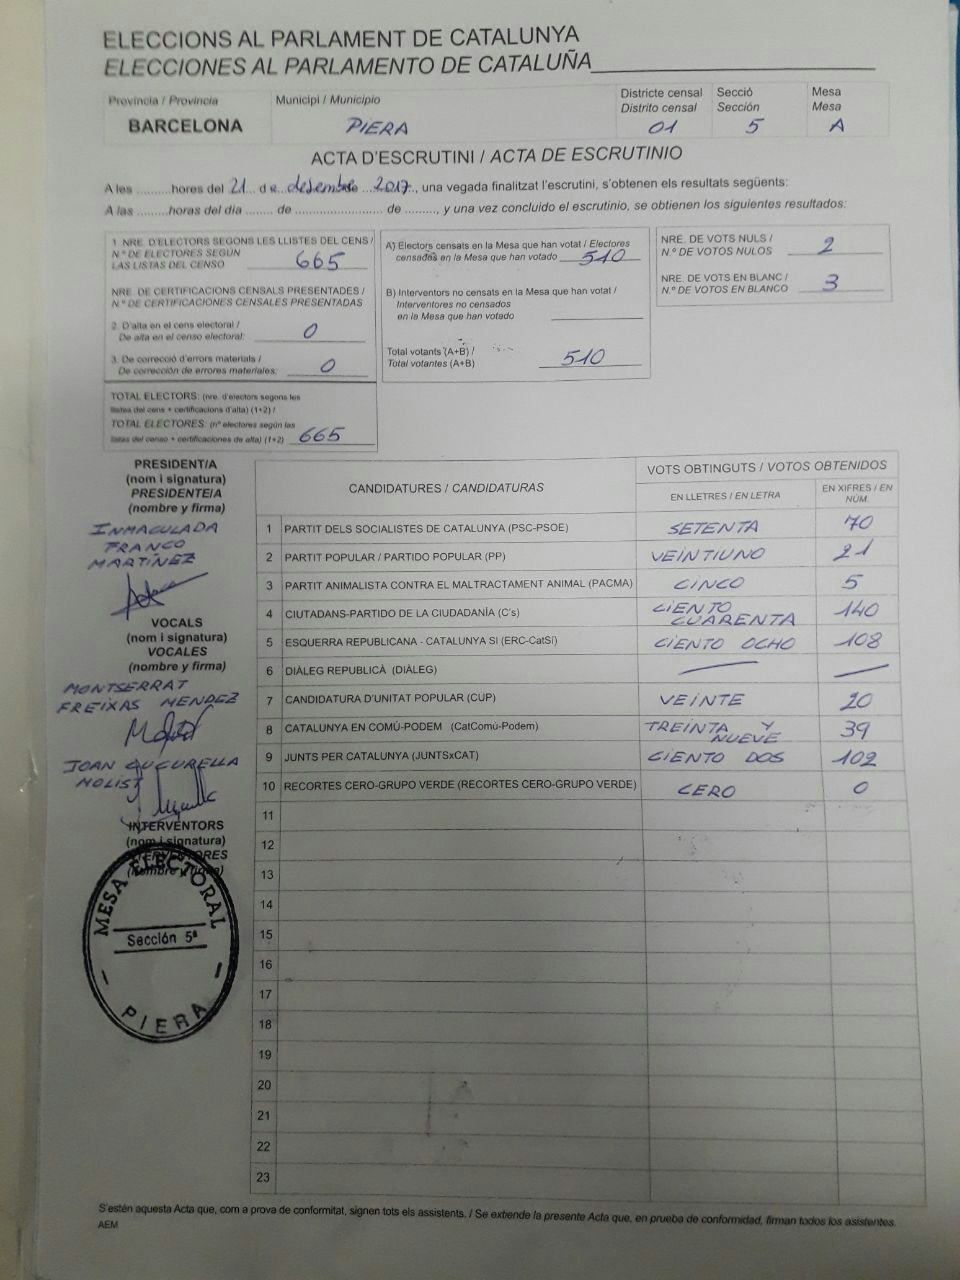 ELECCIONS AL PARLAMENT DE CATALUNYA
ELECCIONES AL PARLAMENTO DE CATALUÑA
Província / Provincia
BARCELONA
Municipi / Municipio
PIERA
Districte censal
Distrito censal
01
Secció
Sección
5
Mesa
Mesa
A
ACTA D'ESCRUTINI / ACTA DE ESCRUTINIO
A les ..........hores del 21 de desembre 2017, una vegada finalitzat l'escrutini, s'obtenen els resultats següents:
A las ..........horas del día ........ de .......................... de .........., y una vez concluido el escrutinio, se obtienen los siguientes resultados:
1. NRE. D'ELECTORS SEGONS LES LLISTES DEL CENS /
N.º DE ELECTORES SEGÚN
LAS LISTAS DEL CENSO 665
NRE. DE CERTIFICACIONS CENSALS PRESENTADES /
N.º DE CERTIFICACIONES CENSALES PRESENTADAS
2. D'alta en el cens electoral /
De alta en el censo electoral: 0
3. De correcció d'errors materials /
De corrección de errores materiales: 0
TOTAL ELECTORS: (nre. d'electors segons les
llistes del cens + certificacions d'alta) (1+2) /
TOTAL ELECTORES: (nº electores según las
listas del censo + certificaciones de alta) (1+2) 665
A) Electors censats en la Mesa que han votat / Electores
censados en la Mesa que han votado 510
B) Interventors no censats en la Mesa que han votat /
Interventores no censados
en la Mesa que han votado
Total votants (A+B) /
Total votantes (A+B) 510
NRE. DE VOTS NULS /
N.º DE VOTOS NULOS 2
NRE. DE VOTS EN BLANC /
N.º DE VOTOS EN BLANCO 3
PRESIDENT/A
(nom i signatura)
PRESIDENTE/A
(nombre y firma)
INMACULADA
FRANCO
MARTÍNEZ
VOCALS
(nom i signatura)
VOCALES
(nombre y firma)
MONTSERRAT
FREIXAS MENDEZ
JOAN CUCURELLA
MOLIST
INTERVENTORS
(nom i signatura)
INTERVENTORES
(nombre y firma)
MESA ELECTORAL
Sección 5ª
PIERA
CANDIDATURES / CANDIDATURAS
VOTS OBTINGUTS / VOTOS OBTENIDOS
EN LLETRES / EN LETRA
EN XIFRES / EN
NÚM.
1 PARTIT DELS SOCIALISTES DE CATALUNYA (PSC-PSOE) SETENTA 70
2 PARTIT POPULAR / PARTIDO POPULAR (PP) VEINTIUNO 21
3 PARTIT ANIMALISTA CONTRA EL MALTRACTAMENT ANIMAL (PACMA) CINCO 5
4 CIUTADANS-PARTIDO DE LA CIUDADANÍA (C's) CIENTO CUARENTA 140
5 ESQUERRA REPUBLICANA - CATALUNYA SÍ (ERC-CatSí) CIENTO OCHO 108
6 DIÀLEG REPUBLICÀ (DIÀLEG) — —
7 CANDIDATURA D'UNITAT POPULAR (CUP) VEINTE 20
8 CATALUNYA EN COMÚ-PODEM (CatComú-Podem) TREINTA Y NUEVE 39
9 JUNTS PER CATALUNYA (JUNTSxCAT) CIENTO DOS 102
10 RECORTES CERO-GRUPO VERDE (RECORTES CERO-GRUPO VERDE) CERO 0
11
12
13
14
15
16
17
18
19
20
21
22
23
S'estén aquesta Acta que, com a prova de conformitat, signen tots els assistents. / Se extiende la presente Acta que, en prueba de conformidad, firman todos los asistentes.
AEM